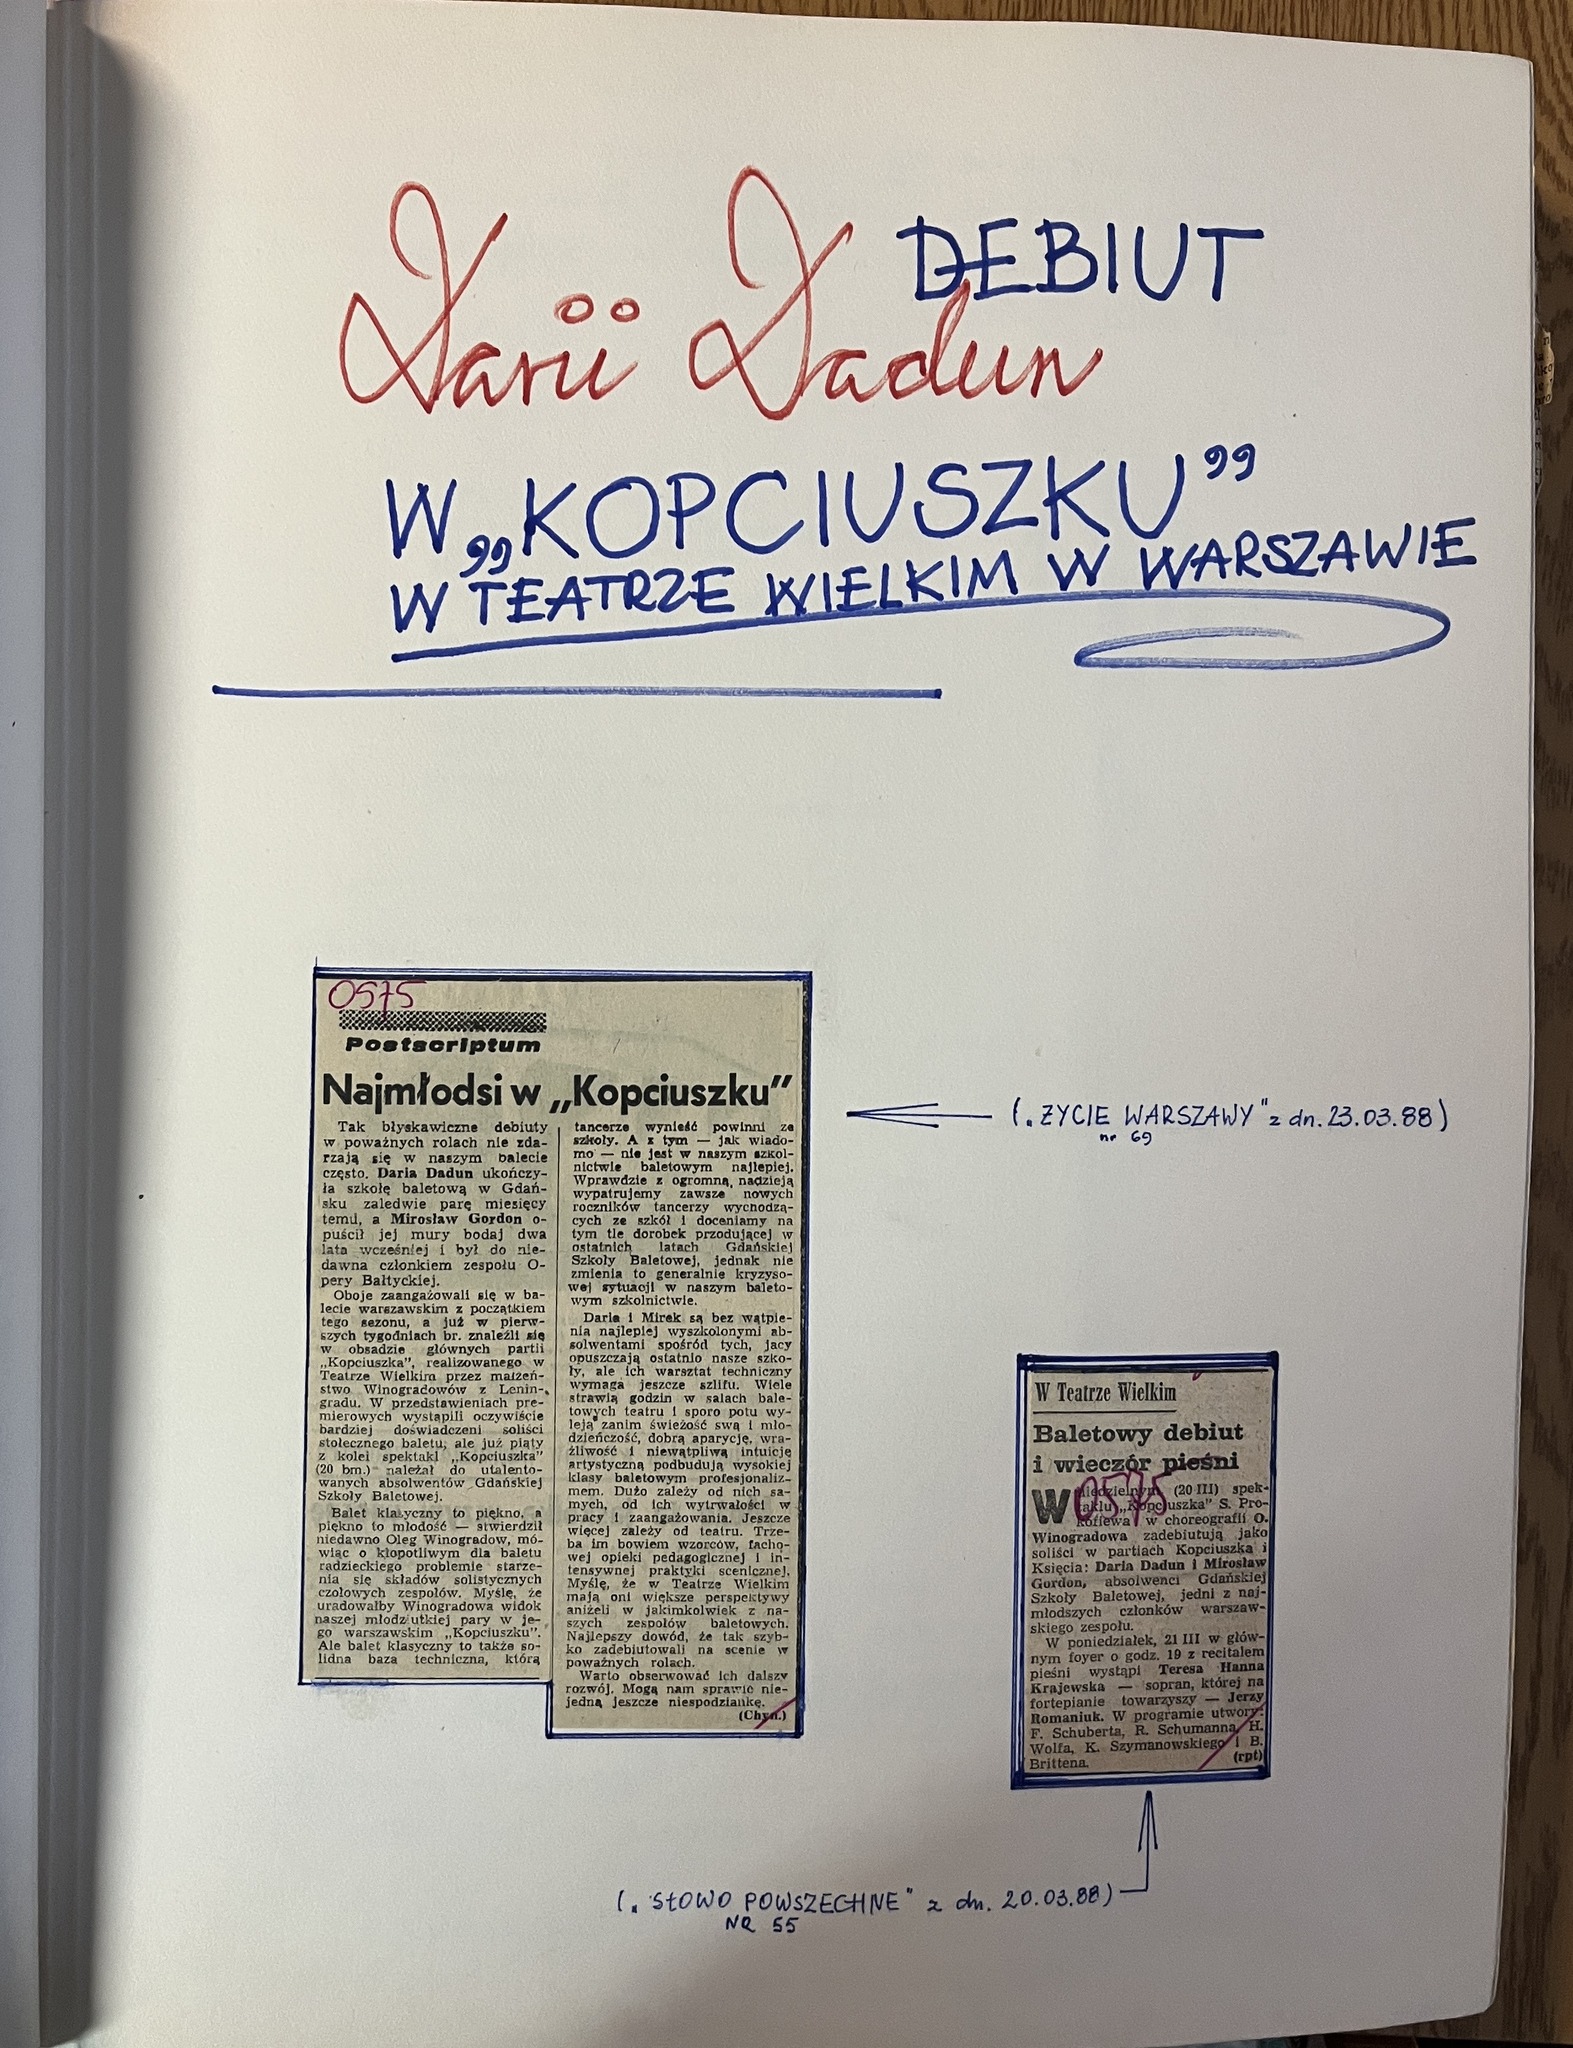 DEBIUT
Darii Dadun
W „KOPCIUSZKU”
W TEATRZE WIELKIM W WARSZAWIE
0575
Postscriptum
Najmłodsi w „Kopciuszku”
Tak błyskawiczne debiuty
w poważnych rolach nie zda-
rzają się w naszym balecie
często. Daria Dadun ukończy-
ła szkołę baletową w Gdań-
sku zaledwie parę miesięcy
temu, a Mirosław Gordon o-
puścił jej mury bodaj dwa
lata wcześniej i był do nie-
dawna członkiem zespołu O-
pery Bałtyckiej.
Oboje zaangażowali się w ba-
lecie warszawskim z początkiem
tego sezonu, a już w pierw-
szych tygodniach br. znaleźli się
w obsadzie głównych partii
„Kopciuszka”, realizowanego w
Teatrze Wielkim przez małżeń-
stwo Winogradowów z Lenin-
gradu. W przedstawieniach pre-
mierowych wystąpili oczywiście
bardziej doświadczeni soliści
stołecznego baletu, ale już piąty
z kolei spektakl „Kopciuszka”
(20 bm.) należał do utalento-
wanych absolwentów Gdańskiej
Szkoły Baletowej.
Balet klasyczny to piękno, a
piękno to młodość — stwierdził
niedawno Oleg Winogradow, mó-
wiąc o kłopotliwym dla baletu
radzieckiego problemie starze-
nia się składów solistycznych
czołowych zespołów. Myślę, że
uradowałby Winogradowa widok
naszej młodziutkiej pary w je-
go warszawskim „Kopciuszku”.
Ale balet klasyczny to także so-
lidna baza techniczna, którą
tancerze wynieść powinni ze
szkoły. A z tym — jak wiado-
mo — nie jest w naszym szkol-
nictwie baletowym najlepiej.
Wprawdzie z ogromną nadzieją
wypatrujemy zawsze nowych
roczników tancerzy wychodzą-
cych ze szkół i doceniamy na
tym tle dorobek przodującej w
ostatnich latach Gdańskiej
Szkoły Baletowej, jednak nie
zmienia to generalnie kryzyso-
wej sytuacji w naszym baleto-
wym szkolnictwie.
Daria i Mirek są bez wątpie-
nia najlepiej wyszkolonymi ab-
solwentami spośród tych, jacy
opuszczają ostatnio nasze szko-
ły, ale ich warsztat techniczny
wymaga jeszcze szlifu. Wiele
strawią godzin w salach bale-
towych teatru i sporo potu wy-
leją zanim świeżość swą i mło-
dzieńczość, dobrą aparycję, wra-
żliwość i niewątpliwą intuicję
artystyczną podbudują wysokiej
klasy baletowym profesjonaliz-
mem. Dużo zależy od nich sa-
mych, od ich wytrwałości w
pracy i zaangażowania. Jeszcze
więcej zależy od teatru. Trze-
ba im bowiem wzorców, facho-
wej opieki pedagogicznej i in-
tensywnej praktyki scenicznej.
Myślę, że w Teatrze Wielkim
mają oni większe perspektywy
aniżeli w jakimkolwiek z na-
szych zespołów baletowych.
Najlepszy dowód, że tak szyb-
ko zadebiutowali na scenie w
poważnych rolach.
Warto obserwować ich dalszy
rozwój. Mogą nam sprawić nie-
jedną jeszcze niespodziankę.
(Chyn.)
(„ŻYCIE WARSZAWY” z dn. 23.03.88)
nr 69
W Teatrze Wielkim
Baletowy debiut
i wieczór pieśni
0575
W niedzielnym (20 III) spek-
taklu „Kopciuszka” S. Pro-
kofiewa w choreografii O.
Winogradowa zadebiutują jako
soliści w partiach Kopciuszka i
Księcia: Daria Dadun i Mirosław
Gordon, absolwenci Gdańskiej
Szkoły Baletowej, jedni z naj-
młodszych członków warszaw-
skiego zespołu.
W poniedziałek, 21 III w głów-
nym foyer o godz. 19 z recitalem
pieśni wystąpi Teresa Hanna
Krajewska — sopran, której na
fortepianie towarzyszy — Jerzy
Romaniuk. W programie utwory:
F. Schuberta, R. Schumanna, H.
Wolfa, K. Szymanowskiego i B.
Brittena.
(rpt)
(„SŁOWO POWSZECHNE” z dn. 20.03.88)
NR 55